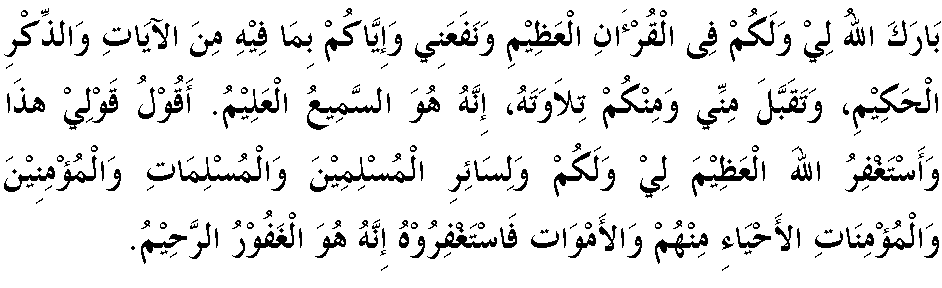 بَارَكَ اللهُ لِيْ وَلَكُمْ فِى الْقُرْءَانِ الْعَظِيْمِ وَنَفَعَنِي وَإِيَّاكُمْ بِمَا فِيْهِ مِنَ الآيَاتِ وَالذِّكْرِ
الْحَكِيْمِ، وَتَقَبَّلَ مِنِّي وَمِنْكُمْ تِلاَوَتَهُ، إِنَّهُ هُوَ السَّمِيعُ الْعَلِيْمُ. أَقُوْلُ قَوْلِيْ هذَا
وَأَسْتَغْفِرُ اللهَ الْعَظِيْمَ لِيْ وَلَكُمْ وَلِسَائِرِ الْمُسْلِمِيْنَ وَالْمُسْلِمَاتِ وَالْمُؤْمِنِيْنَ
وَالْمُؤْمِنَاتِ الأَحْيَاءِ مِنْهُمْ وَالأَمْوَات فَاسْتَغْفِرُوْهُ إِنَّهُ هُوَ الْغَفُوْرُ الرَّحِيْمُ.